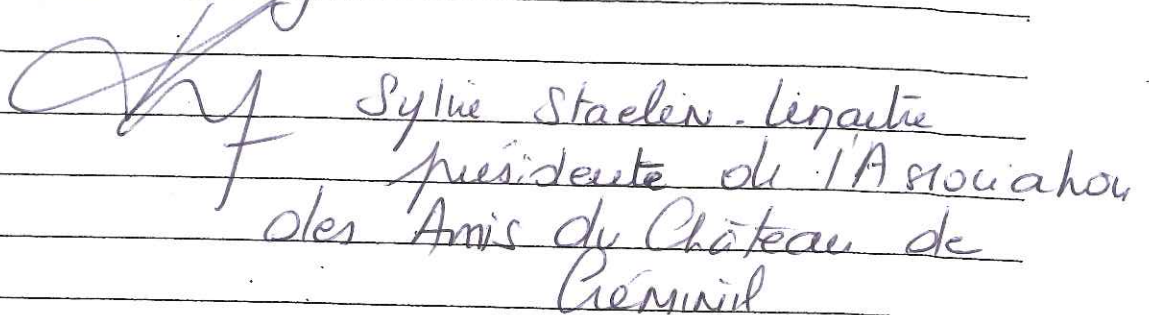 Sylvie Staelen-Lemaitre
présidente de l'Association
des Amis du Château de
Créminil